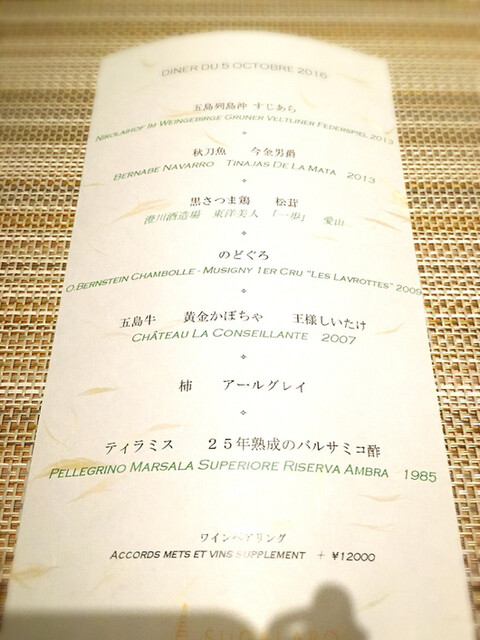 DINER DU 5 OCTOBRE 2016
五島列島沖 すじあら
NIKOLAIHOF IM WEINGEBIRGE GRÜNER VELTLINER FEDERSPIEL 2013
秋刀魚 今金男爵
BERNABE NAVARRO TINAJAS DE LA MATA 2013
黒さつま鶏 松茸
澄川酒造場 東洋美人 「一歩」 愛山
のどぐろ
O.BERNSTEIN CHAMBOLLE - MUSIGNY 1ER CRU "LES LAVROTTES" 2009
五島牛 黄金かぼちゃ 王様しいたけ
CHÂTEAU LA CONSEILLANTE 2007
柿 アールグレイ
ティラミス 25年熟成のバルサミコ酢
PELLEGRINO MARSALA SUPERIORE RISERVA AMBRA 1985
ワインペアリング
ACCORDS METS ET VINS SUPPLEMENT + ¥12000